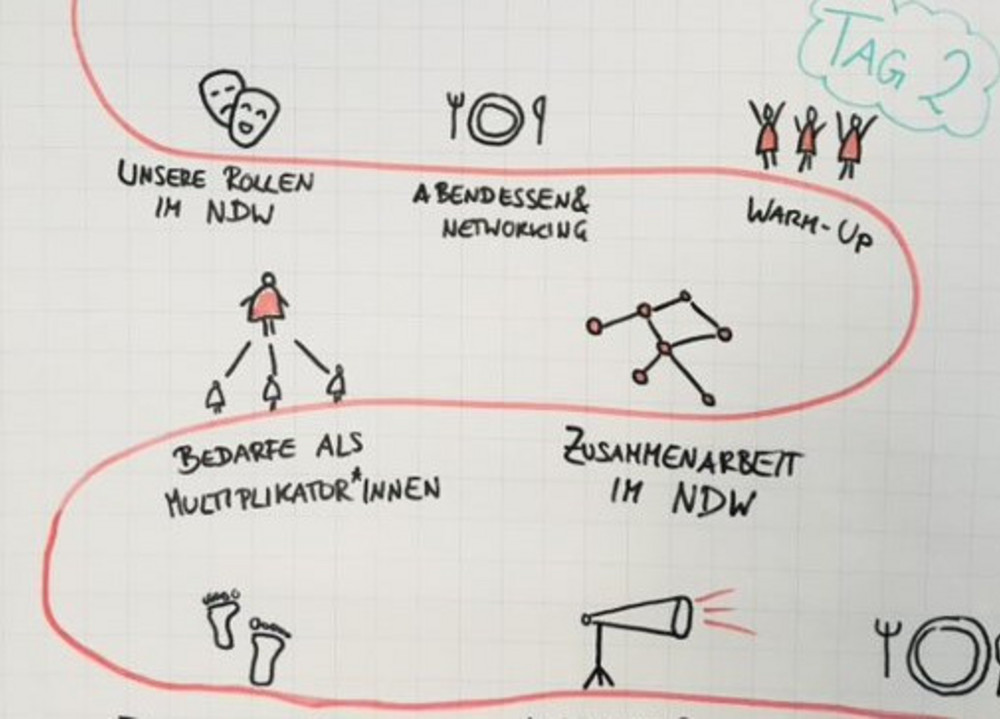 TAG 2
UNSERE ROLLEN
IM NDW
ABENDESSEN&
NETWORKING
WARM-UP
BEDARFE ALS
MULTIPLIKATOR*INNEN
ZUSAMMENARBEIT
IM NDW